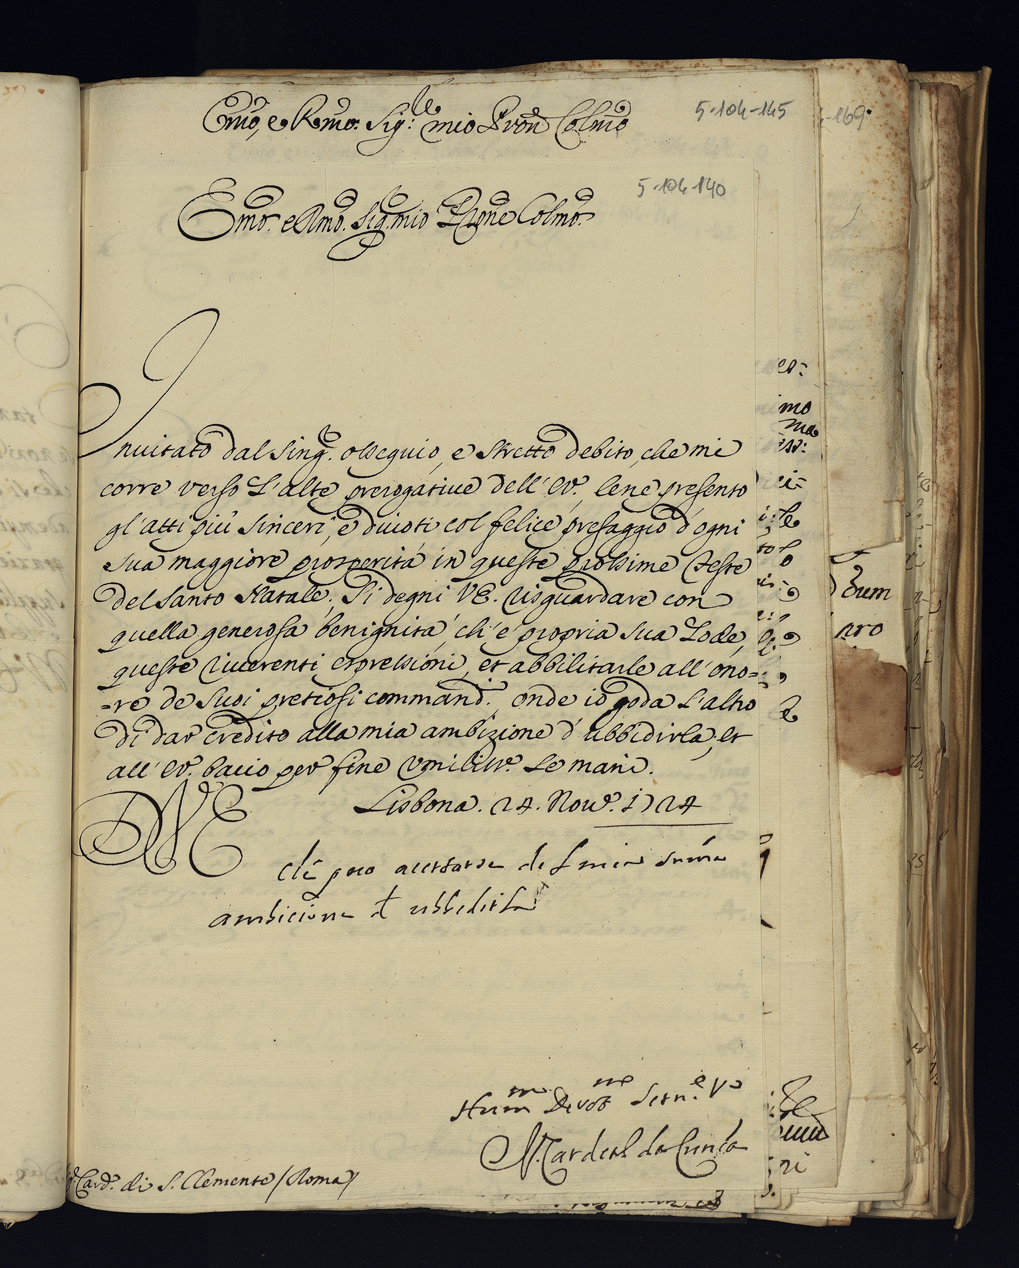 Emo, e Rmo. Sig:le mio Pron Colmo
5-104-145
-169
5-104-140
Emo. e Rmo. Sig. mio Prone Colmo.
Inuitato dal Sing.r ossequio, e stretto debito, che mi
corre verso l'alte prerogatiue dell'Ev.a lene presento
gl'atti più sinceri, e diuoti col felice presaggio d'ogni
sua maggiore prosperità in queste prossime Feste
del Santo Natale. Si degni VE. risguardare con
quella generosa benignità, ch'è propria sua Lode,
queste riuerenti espressioni, et abbilitarle all'ono-
-re de suoi pretiosi command.i, onde io goda l'altro
di dar credito alla mia ambizione d'ubbidirla, et
all'Ev.a bacio per fine vmiliss.e le mani.
Lisbona. 24. Nou.e 1724
VE
che poco accertarse de l mia suma
ambicione d ubbedirla
Hum Deuot Seru.e V
Mardeal da Cunha
Card. di S. Clemente /Roma/